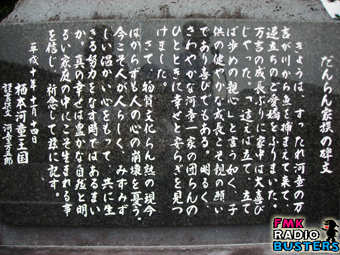 だんらん家族の碑文
きょうは、すったれ河童の万
吉が川から魚を捕まえて来て、
逆立ちのご愛嬌をふりまいた。
万吉の成長ぶりに家中は大喜び
じゃった。「這えば立て 立て
ば歩めの親心」と言う如く、子
供の健やかな成長こそ親の願い
であり喜びでもある。明るく、
さわやかな河童一家の団らんの
ひとときに幸せと安らぎを見つ
けました。
さて、物質文化らん熟の現今
はからずも人の心の崩壊を憂う。
今こそ人が人らしく、みずみず
しい温かい心をもって、共に生
きる努力をなす時ではあるまい
か。真の幸せは豊かな自然と明
るい家庭の中にこそ生まれる事
を信じ、祈念して茲に記す。
平成十年十一月一四日
栖本河童王国
FMK
RADIO
BUSTERS